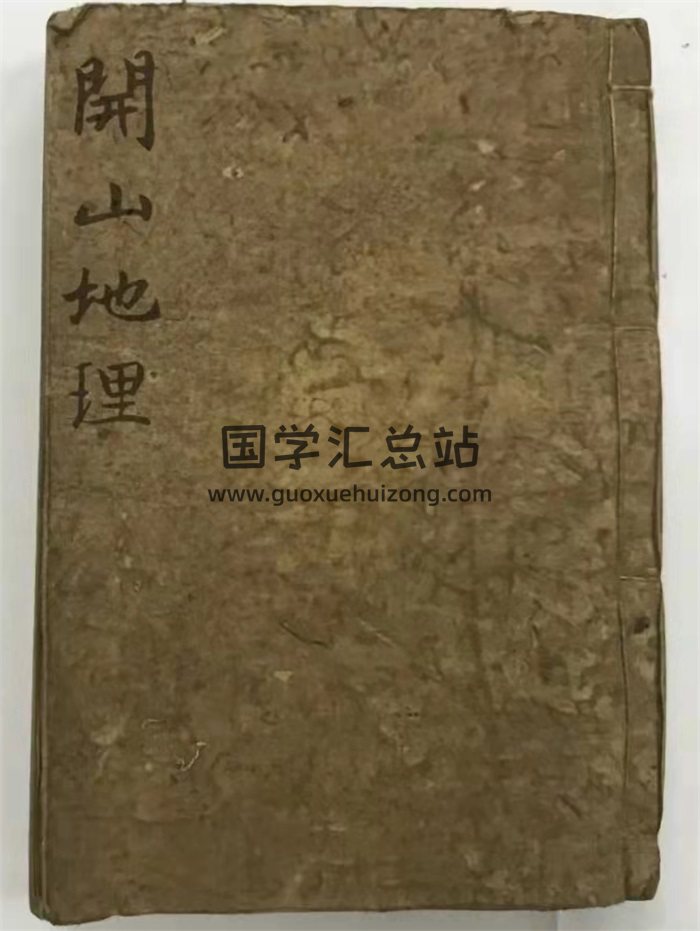 開山地理
国学汇总站
www.guoxuehuizong.com